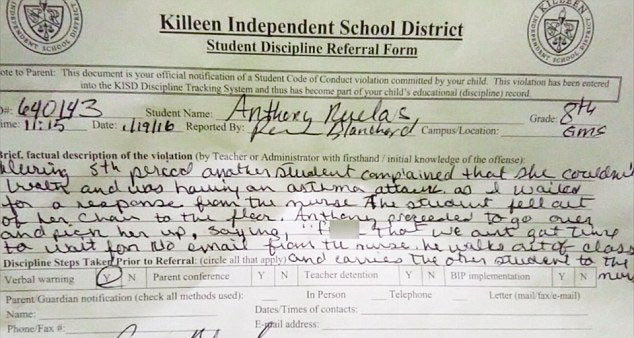 Killeen Independent School District
Student Discipline Referral Form
ote to Parent: This document is your official notification of a Student Code of Conduct violation committed by your child. This violation has been entered
into the KISD Discipline Tracking System and thus has become part of your child's educational (discipline) record.
D#: 640143 Student Name: Anthony Ruelas Grade: 8th
ime: 11:15 Date: 1/19/16 Reported By: Blanchard Campus/Location: GMS
Brief, factual description of the violation (by Teacher or Administrator with firsthand / initial knowledge of the offense):
During 5th period another student complained that she couldn't
breath and was having an asthma attack. as I waited
for a response from the nurse the student fell out
of her chair to the floor. Anthony proceeded to go over
and pick her up, saying, "f that we ain't got time
to wait for no email from the nurse. he walks out of class
Discipline Steps Taken Prior to Referral: (circle all that apply) and carries the other student to the
nurse
Verbal warning Y N Parent conference Y N Teacher detention Y N BIP implementation Y N
Parent/Guardian notification (check all methods used): In Person Telephone Letter (mail/fax/e-mail)
Name: Dates/Times of contacts:
Phone/Fax #: E-mail address: